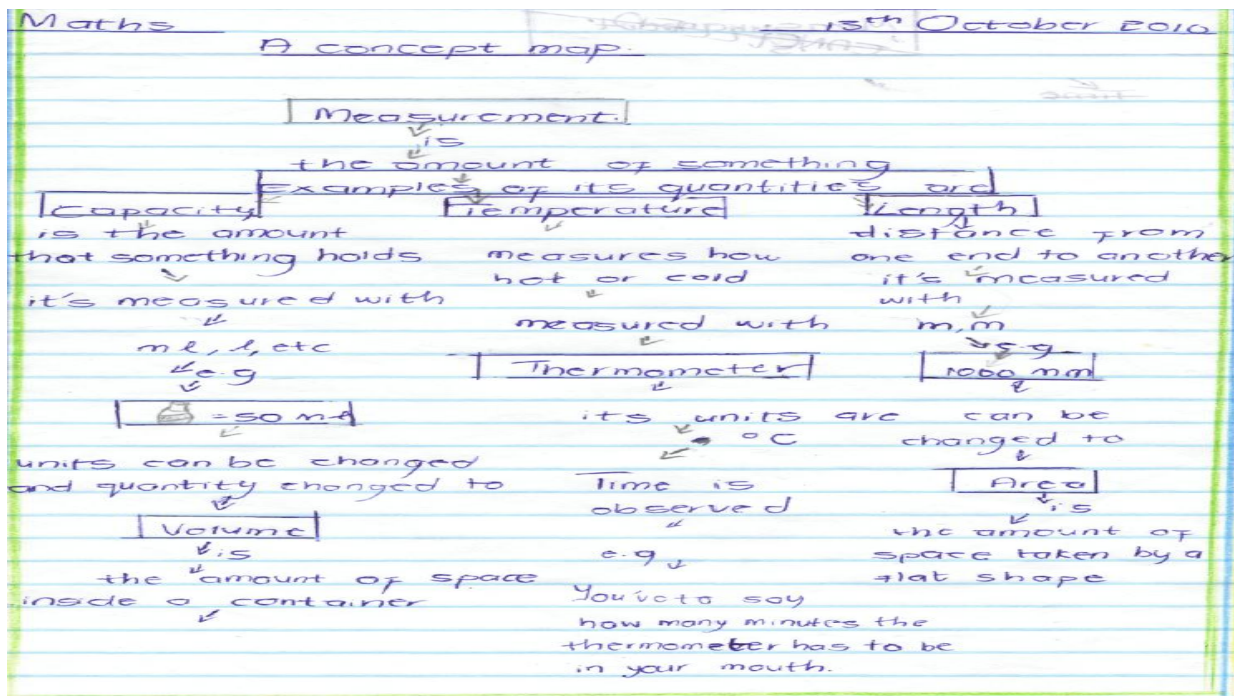 Maths 15th October 2010
A concept map.
Measurement.
is
the amount of something
Examples of its quantities are
Capacity
is the amount
that something holds
it's measured with
ml, l, etc
e.g
= 50 ml
units can be changed
and quantity changed to
Volume
is
the amount of space
inside a container
Temperature
measures how
hot or cold
measured with
Thermometer
its units are
°C
Time is
observed
e.g
You've to say
how many minutes the
thermometer has to be
in your mouth.
Length
distance from
one end to another
it's measured
with
m, m
e.g
1000 mm
can be
changed to
Area
is
the amount of
space taken by a
flat shape